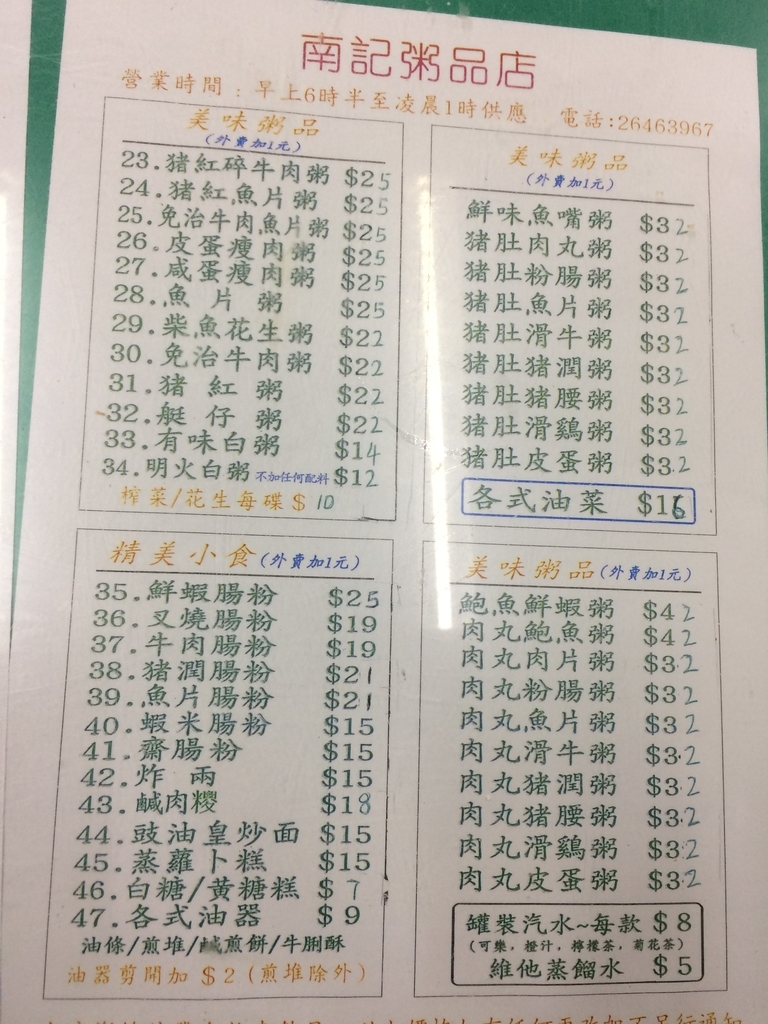 南記粥品店
營業時間：早上6時半至凌晨1時供應　電話:26463967
美味粥品
(外賣加1元)
23.猪紅碎牛肉粥 $25
24.猪紅魚片粥 $25
25.免治牛肉魚片粥 $25
26.皮蛋瘦肉粥 $25
27.咸蛋瘦肉粥 $25
28.魚片粥 $25
29.柴魚花生粥 $22
30.免治牛肉粥 $22
31.猪紅粥 $22
32.艇仔粥 $22
33.有味白粥 $14
34.明火白粥 不加任何配料 $12
榨菜/花生每碟 $10
美味粥品
(外賣加1元)
鮮味魚嘴粥 $32
猪肚肉丸粥 $32
猪肚粉腸粥 $32
猪肚魚片粥 $32
猪肚滑牛粥 $32
猪肚猪潤粥 $32
猪肚猪腰粥 $32
猪肚滑鷄粥 $32
猪肚皮蛋粥 $32
各式油菜 $16
精美小食(外賣加1元)
35.鮮蝦腸粉 $25
36.叉燒腸粉 $19
37.牛肉腸粉 $19
38.猪潤腸粉 $21
39.魚片腸粉 $21
40.蝦米腸粉 $15
41.齋腸粉 $15
42.炸兩 $15
43.鹹肉糭 $18
44.豉油皇炒面 $15
45.蒸蘿卜糕 $15
46.白糖/黄糖糕 $7
47.各式油器 $9
油條/煎堆/鹹煎餅/牛脷酥
油器剪開加 $2 (煎堆除外)
美味粥品(外賣加1元)
鮑魚鮮蝦粥 $42
肉丸鮑魚粥 $42
肉丸肉片粥 $32
肉丸粉腸粥 $32
肉丸魚片粥 $32
肉丸滑牛粥 $32
肉丸猪潤粥 $32
肉丸猪腰粥 $32
肉丸滑鷄粥 $32
肉丸皮蛋粥 $32
罐裝汽水~每款 $8
(可樂，橙汁，檸檬茶，菊花茶)
維他蒸餾水 $5